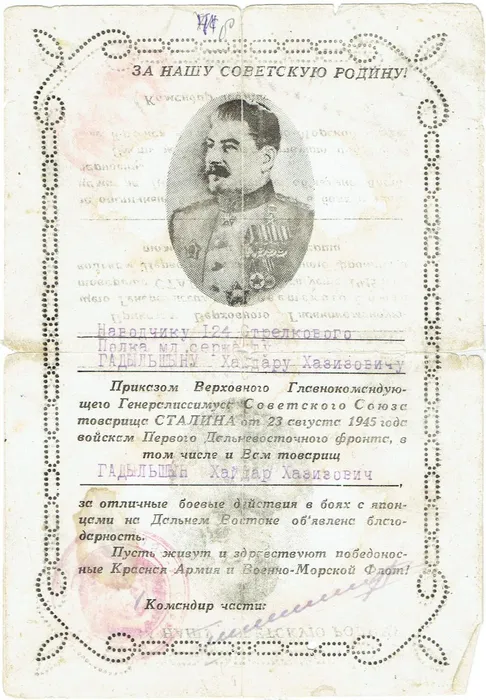 ЗА НАШУ СОВЕТСКУЮ РОДИНУ!
Наводчику 124 Стрелкового
Полка мл.сержанту
ГАДЫЛЬШИНУ Хайдару Хазизовичу
Приказом Верховного Главнокомандую-
щего Генералиссимуса Советского Союза
товарища СТАЛИНА от 23 августа 1945 года
войскам Первого Дальневосточного фронта, в
том числе и Вам товарищ
ГАДЫЛЬШИН Хайдар Хазизович,
за отличные боевые действия в боях с япон-
цами на Дальнем Востоке об'явлена благо-
дарность.
Пусть живут и здравствуют победонос-
ные Красная Армия и Военно-Морской Флот!
Командир части: